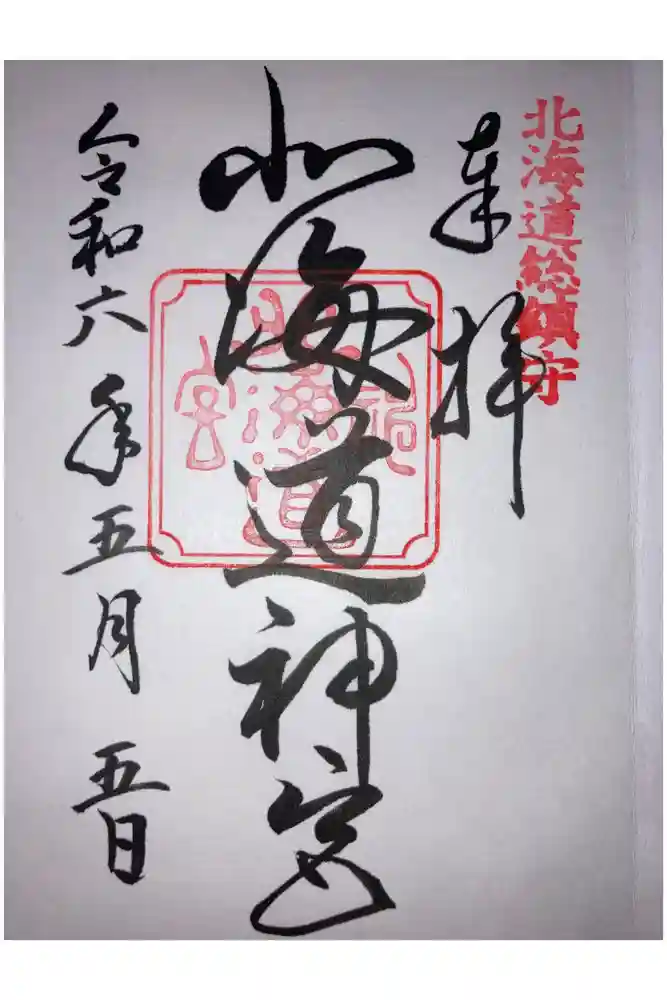 北海道総鎮守
奉拝
北海道神宮
北海道神宮
令和六年五月五日